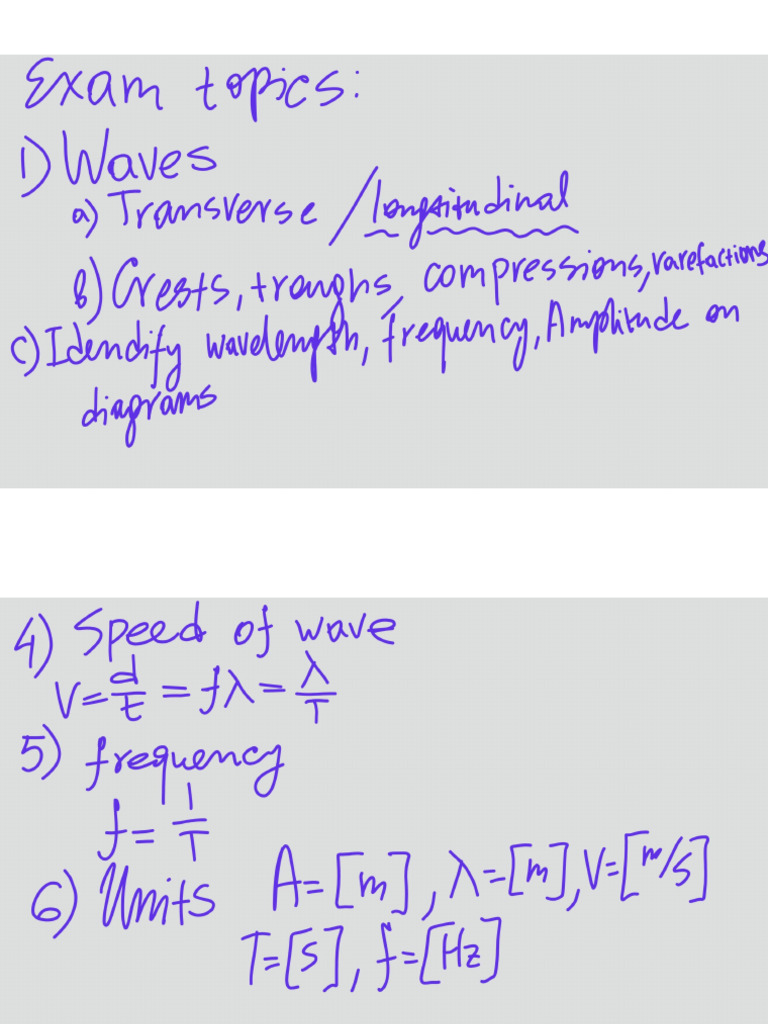 Exam topics:
1) Waves
a) Transverse / longitudinal
b) Crests, troughs, compressions, rarefactions
c) Identify wavelength, frequency, Amplitude on
diagrams
4) Speed of wave
V = d/t = fλ = λ/T
5) frequency
f = 1/T
6) Units A = [m], λ = [m], V = [m/s]
T = [s], f = [Hz]